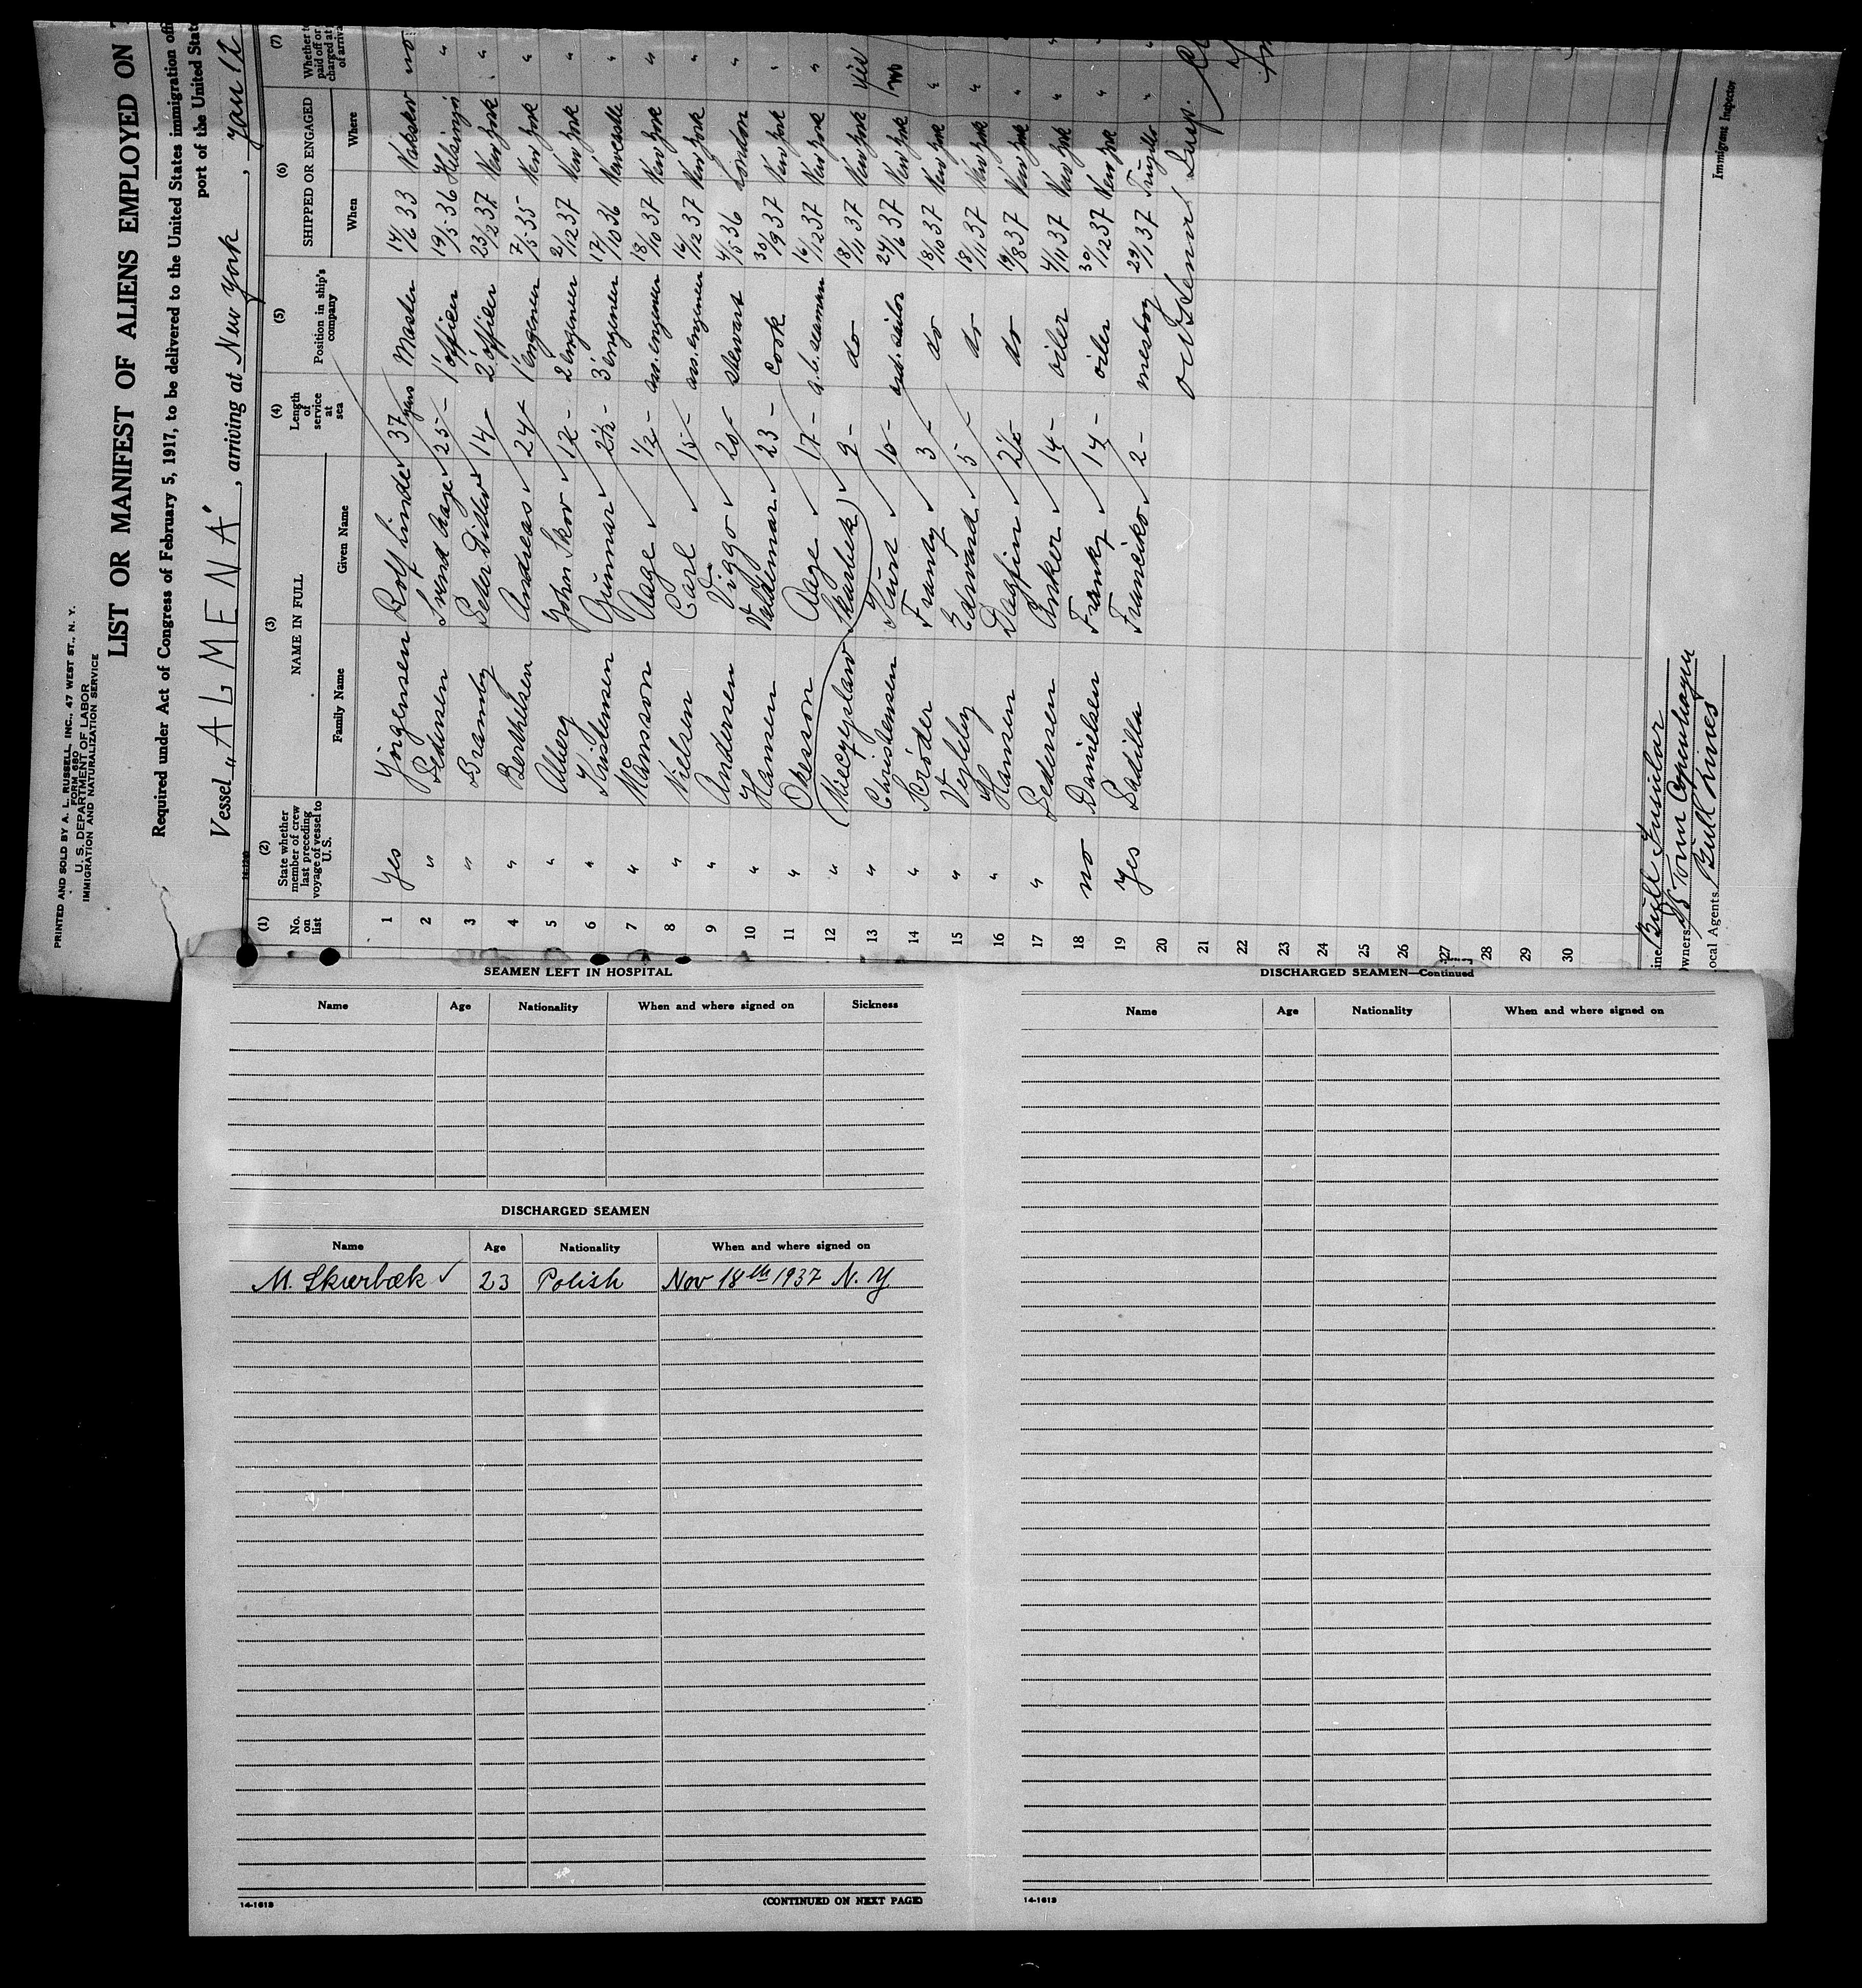 PRINTED AND SOLD BY A. L. RUSSELL, INC., 47 WEST ST., N. Y.
FORM 680
U. S. DEPARTMENT OF LABOR
IMMIGRATION AND NATURALIZATION SERVICE
LIST OR MANIFEST OF ALIENS EMPLOYED ON
Required under Act of Congress of February 5, 1917, to be delivered to the United States immigration
port of the United
Vessel "ALMENA", arriving at New York,
(1) (2) (3) (4) (5) (6) (7)
No. on list State whether member of crew last preceding voyage of vessel to U. S. NAME IN FULL Family Name Given Name Length of service at sea Position in ship's company SHIPPED OR ENGAGED When Where Whether
1 Yes Jörgensen Rolf Linder 37 years Master 14/6 33 Nakskov no
2 " Pedersen Svend Aage 25 - 1' officer 19/5-36 Helsingör "
3 " Bramby Peter Ditlev 14 - 2' officer 23/2 37 New York "
4 " Berthelsen Andreas 24 - 1' engeneer 7/5 35 New York "
5 " Alberg John Skov 12 - 2' engeneer 2/12 37 New York "
6 " Kristensen Gunnar 2½ - 3' engeneer 17/10 36 "
7 " Månsson Aage ½ - ass. engeneer 18/10 37 New York "
8 " Nielsen Carl 15 - ass. engeneer 16/12 37 New York "
9 " Andersen Viggo 20 - steward 4/5 36 London "
10 " Hansen Valdemar 23 - cook 30/9 37 New York "
11 " Okesson Aage 17 - a.b. seaman 16/12 37 New York "
12 " Mieczyslaw Skurbek 9 - do 18/11 37 New York
13 " Christensen Kurt 10 - ord. sailor 24/6 37 New York no
14 " Scröder Frantz 3 - do 18/10 37 New York "
15 " Vejleby Edvard 5 - do 18/11 37 New York "
16 " Hansen Dagfin 2½ - do 19/8 37 New York "
17 " Pedersen Anker 14 - oiler 4/11 37 New York "
18 no Danielsen Frankz 14 - oiler 30/12 37 New York "
19 Yes Padilla Francisko 2 - messboy 29/1 37 Trujillo "
20
21
22
23
24
25
26
27
28
29
30
Bull Insular
Owners Torm Copenhagen
Local Agents Bull Lines
Immigrant Inspector
SEAMEN LEFT IN HOSPITAL
Name Age Nationality When and where signed on Sickness
DISCHARGED SEAMEN
Name Age Nationality When and where signed on
M. Skurbæk ✓ 23 Polish Nov 18th 1937 N. Y
14-1613
(CONTINUED ON NEXT PAGE)
DISCHARGED SEAMEN—Continued
Name Age Nationality When and where signed on
14-1613